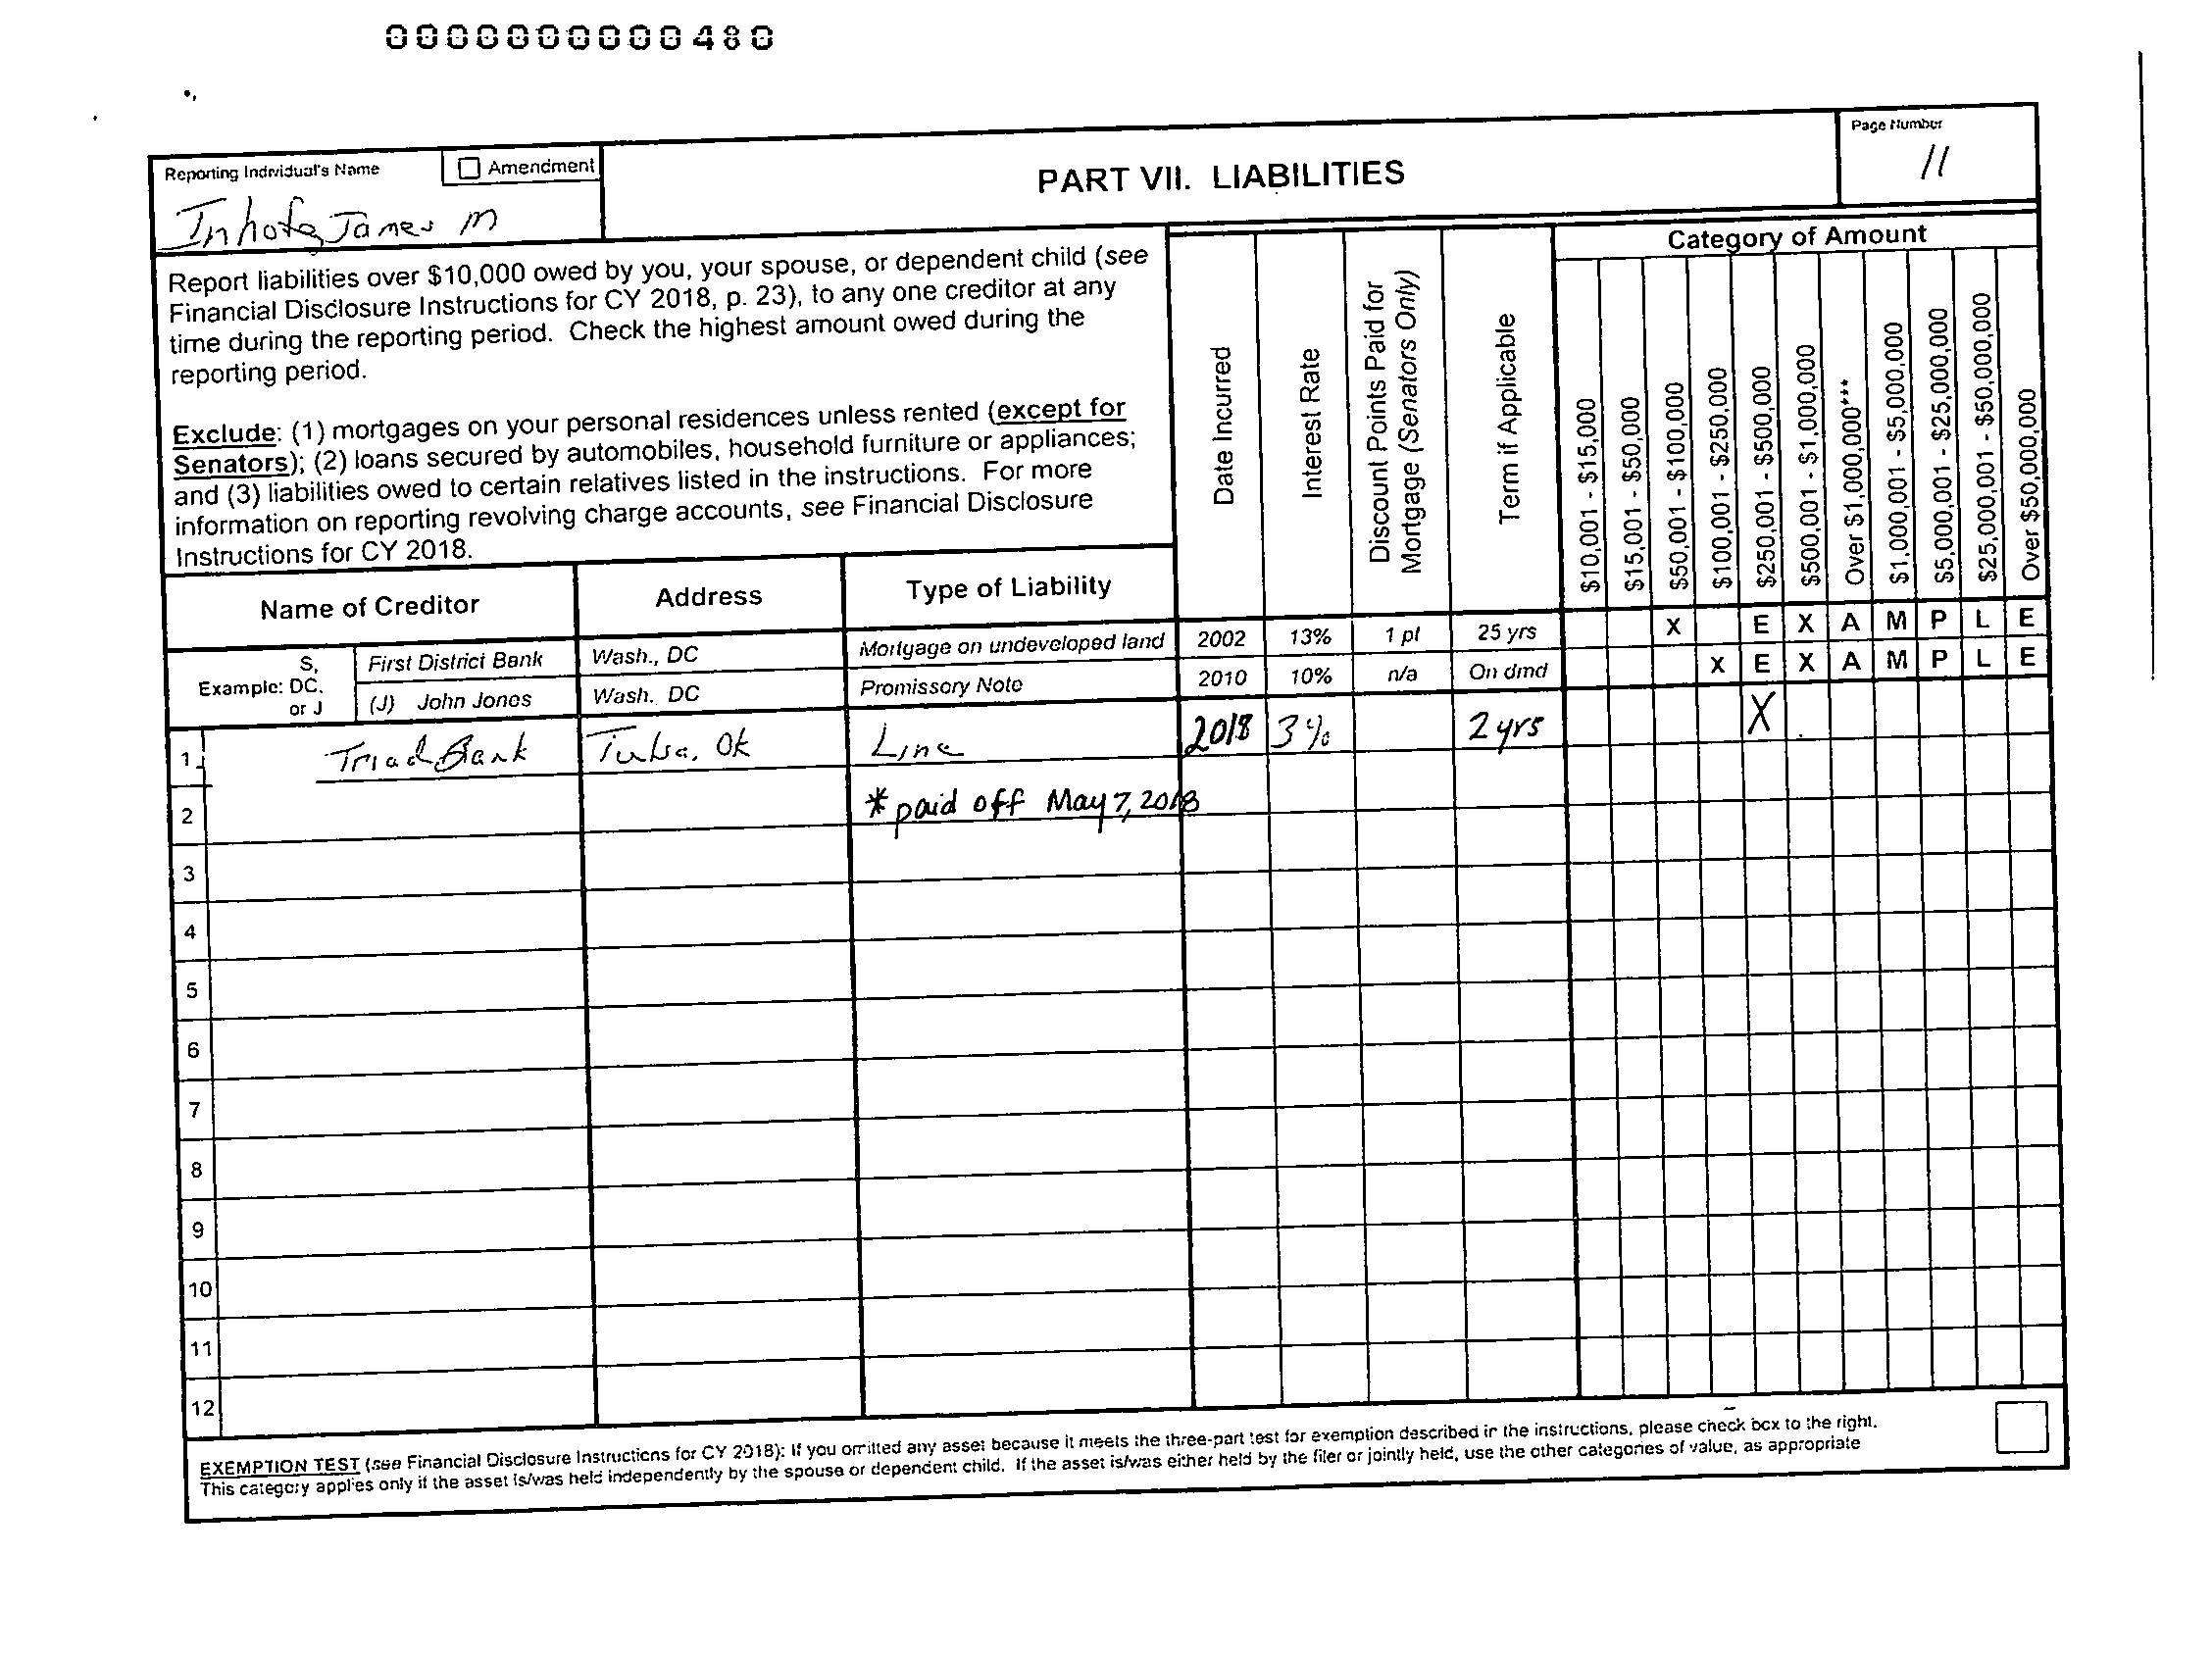 0000000000480
Reporting Individual's Name
Amendment
PART VII. LIABILITIES
Page Number
11
Inhofe, James M
Report liabilities over $10,000 owed by you, your spouse, or dependent child (see
Financial Disclosure Instructions for CY 2018, p. 23), to any one creditor at any
time during the reporting period. Check the highest amount owed during the
reporting period.
Exclude: (1) mortgages on your personal residences unless rented (except for
Senators); (2) loans secured by automobiles, household furniture or appliances;
and (3) liabilities owed to certain relatives listed in the instructions. For more
information on reporting revolving charge accounts, see Financial Disclosure
Instructions for CY 2018.
Name of Creditor
Address
Type of Liability
Date Incurred
Interest Rate
Discount Points Paid for
Mortgage (Senators Only)
Term if Applicable
Category of Amount
$10,001 - $15,000
$15,001 - $50,000
$50,001 - $100,000
$100,001 - $250,000
$250,001 - $500,000
$500,001 - $1,000,000
Over $1,000,000***
$1,000,001 - $5,000,000
$5,000,001 - $25,000,000
$25,000,001 - $50,000,000
Over $50,000,000
Example:
S,
DC,
or J
First District Bank Wash., DC Mortgage on undeveloped land 2002 13% 1 pt 25 yrs X E X A M P L E
(J) John Jones Wash. DC Promissory Note 2010 10% n/a On dmd X E X A M P L E
1 Triad Bank Tulsa, OK Line 2018 3% 2 yrs X
2 * paid off May 7, 2018
3
4
5
6
7
8
9
10
11
12
EXEMPTION TEST (see Financial Disclosure Instructions for CY 2018): If you omitted any asset because it meets the three-part test for exemption described in the instructions, please check box to the right.
This category applies only if the asset is/was held independently by the spouse or dependent child. If the asset is/was either held by the filer or jointly held, use the other categories of value, as appropriate